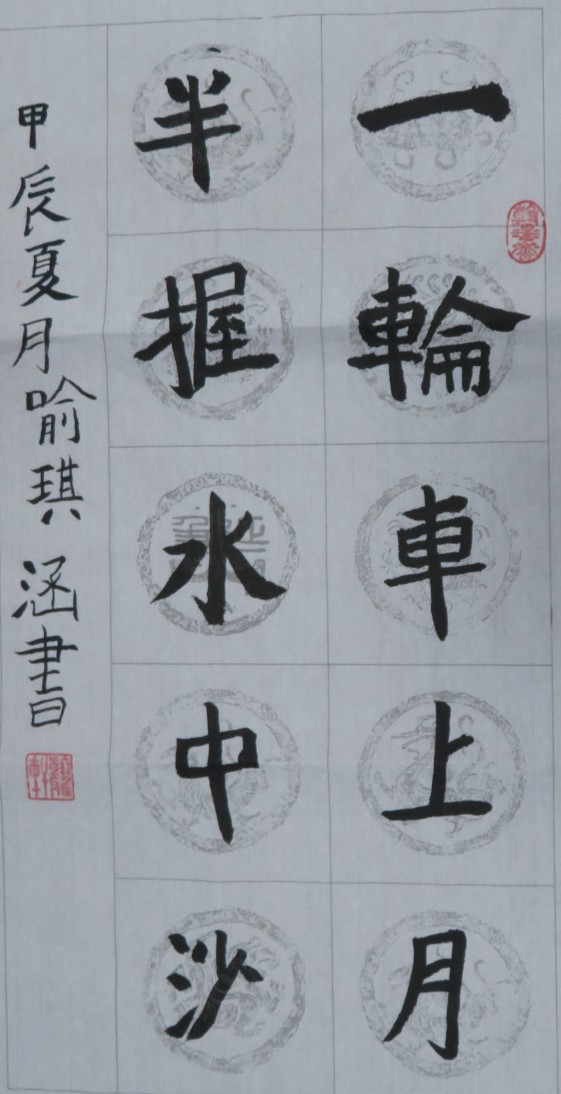 一輪車上月
半握水中沙
甲辰夏月喻琪涵書